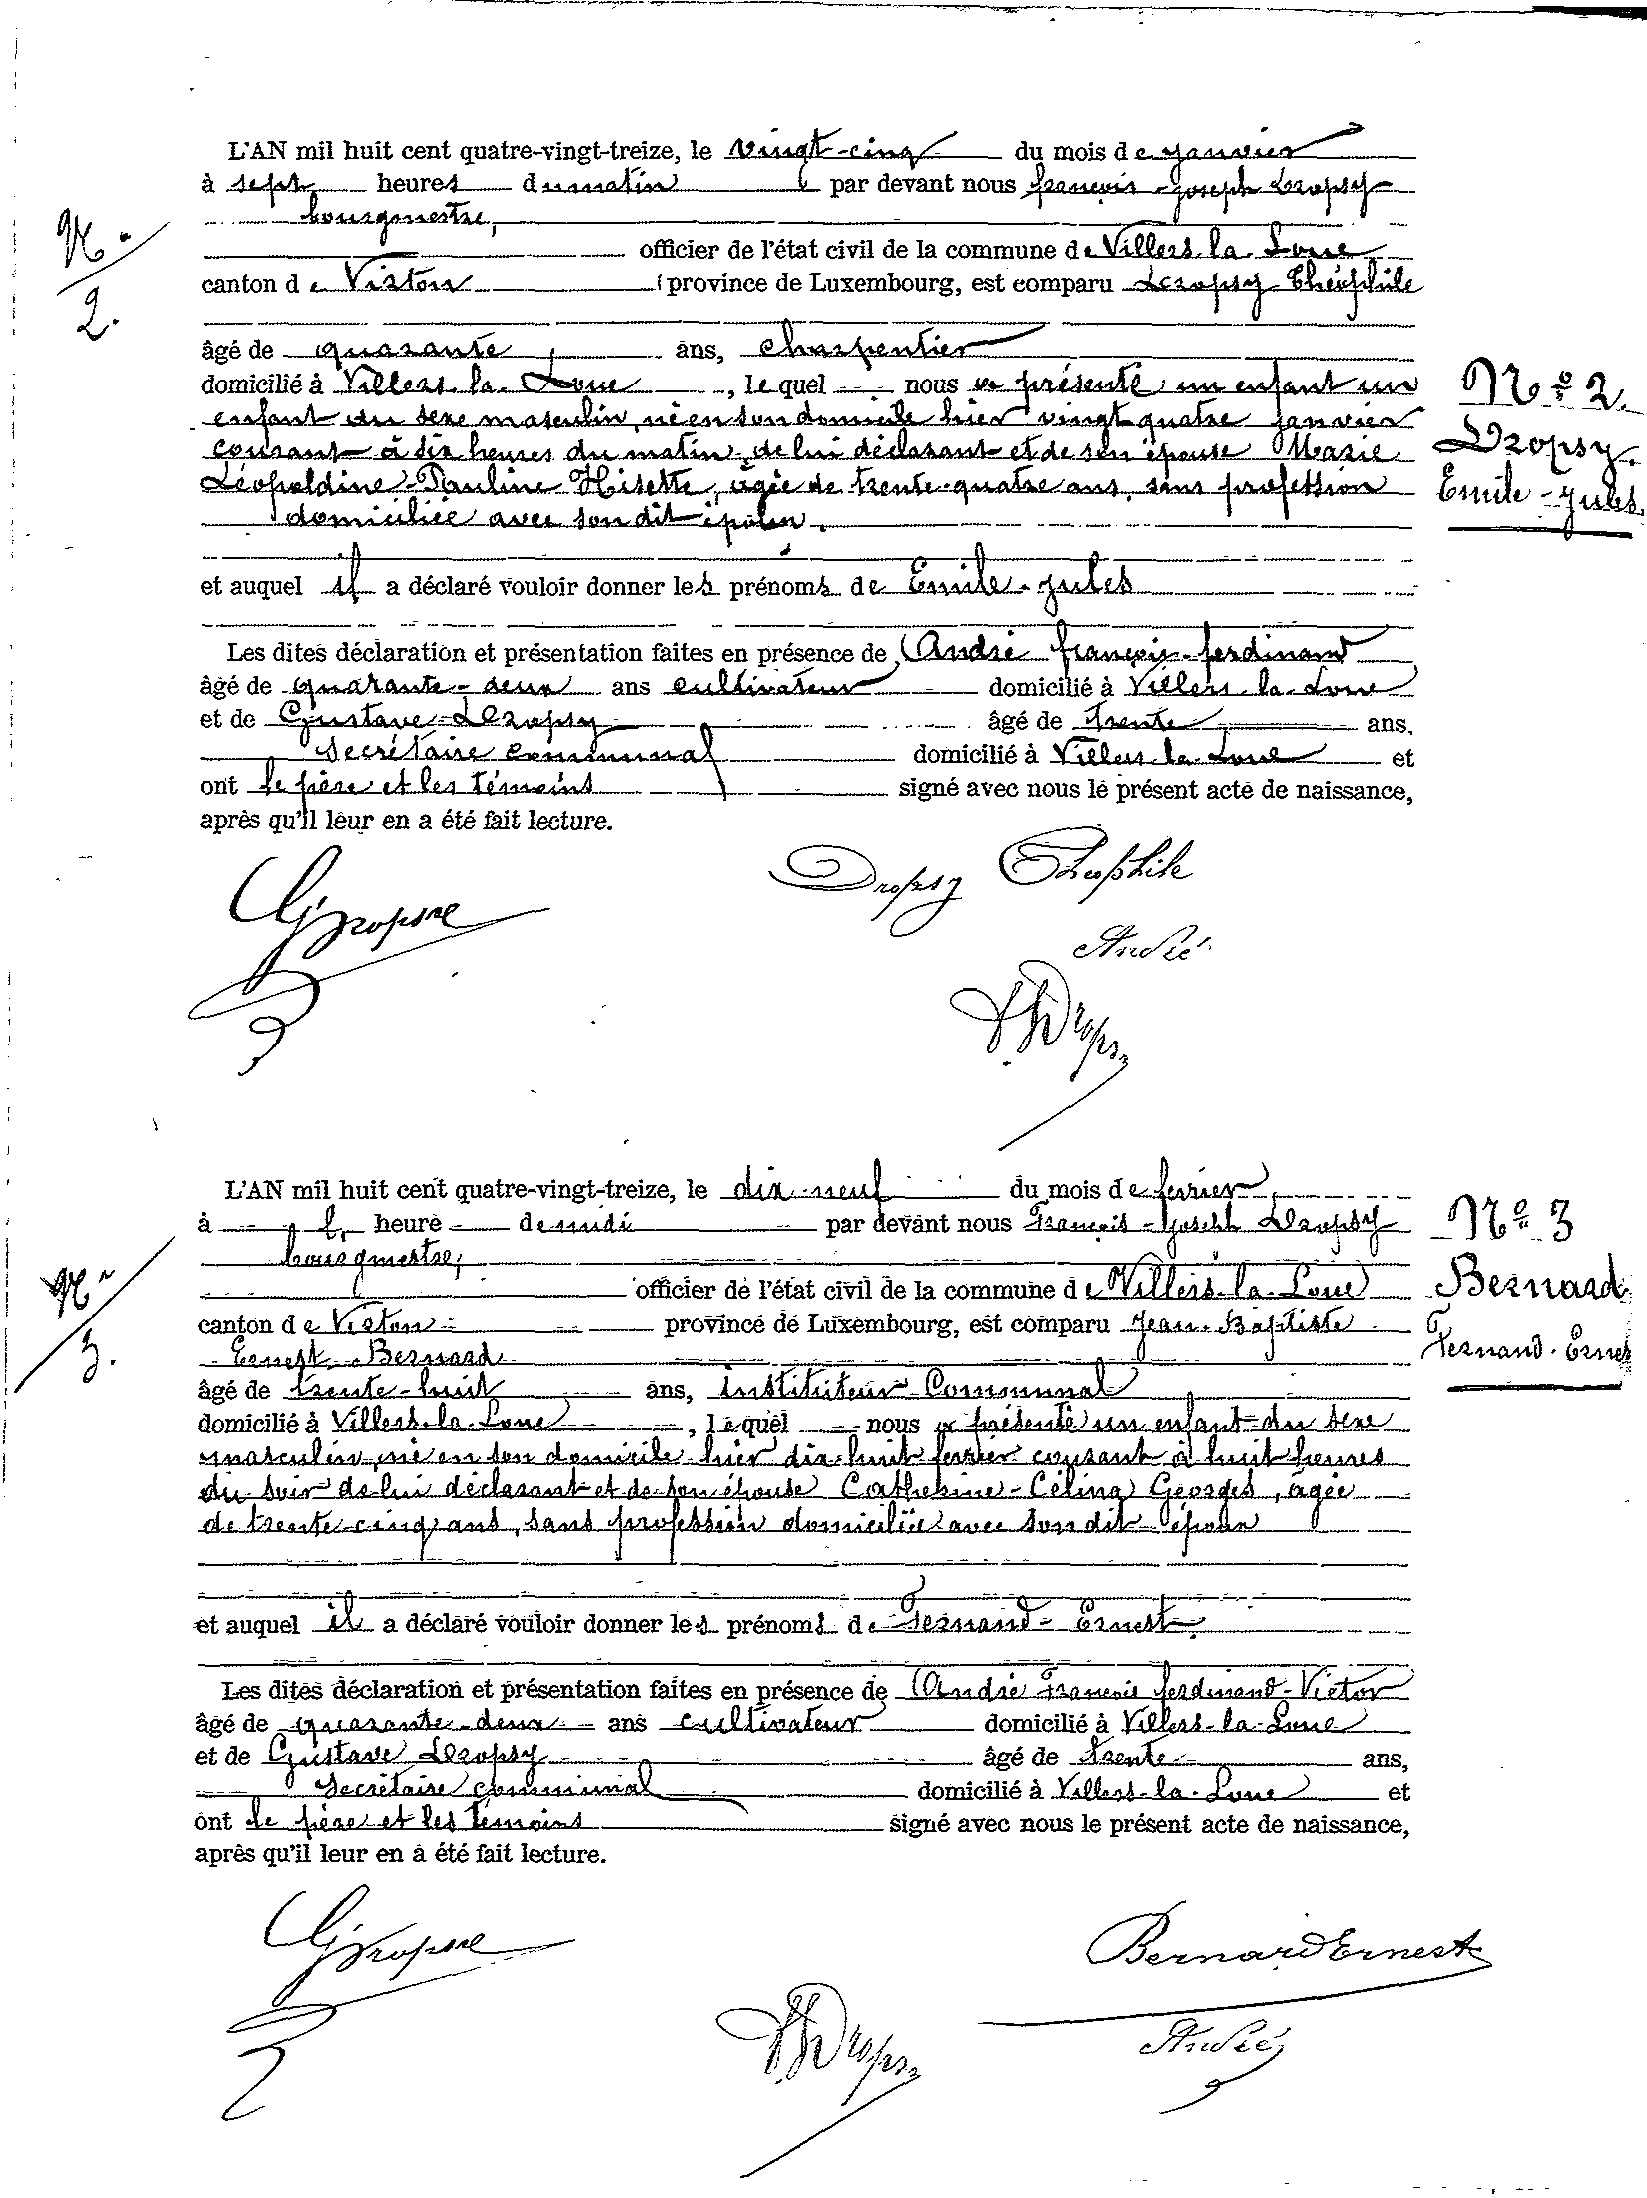 L'AN mil huit cent quatre-vingt-treize, le vingt-cinq du mois de janvier
à sept heures du matin par devant nous françois-Joseph Dropsy
bourgmestre,
officier de l'état civil de la commune de Villers-la-Loue
canton de Virton province de Luxembourg, est comparu Dropsy Théophile
âgé de quarante ans, charpentier
domicilié à Villers-la-Loue, lequel nous a présenté un enfant un
enfant du sexe masculin, né en son domicile hier vingt quatre janvier
courant à dix heures du matin, de lui déclarant et de son épouse Marie
Léopoldine-Pauline Hisette, âgée de trente-quatre ans, sans profession
domiciliée avec son dit époux.
et auquel il a déclaré vouloir donner les prénoms de Emile-Jules
Les dites déclaration et présentation faites en présence de André françois-ferdinand
âgé de quarante-deux ans cultivateur domicilié à Villers-la-Loue
et de Gustave Dropsy âgé de trente ans.
secrétaire communal domicilié à Villers-la-Loue et
ont le père et les témoins signé avec nous le présent acte de naissance,
après qu'il leur en a été fait lecture.
Dropsy Théophile
André
N°
2.
N° 2.
Dropsy.
Emile-Jules
L'AN mil huit cent quatre-vingt-treize, le dix-neuf du mois de fevrier
à heure de midi par devant nous François-Joseph Dropsy
bourgmestre,
officier de l'état civil de la commune de Villers-la-Loue
canton de Virton province de Luxembourg, est comparu Jean-Baptiste
Ernest Bernard
âgé de trente-huit ans, instituteur Communal
domicilié à Villers-la-Loue, lequel nous a présenté un enfant du sexe
masculin, né en son domicile hier dix-huit fevrier courant à huit heures
du soir de lui déclarant et de son épouse Catherine-Célina Georges, âgée
de trente-cinq ans, sans profession domiciliée avec son dit époux
et auquel il a déclaré vouloir donner les prénoms de Fernand-Ernest
Les dites déclaration et présentation faites en présence de André François ferdinand-Victor
âgé de quarante-deux ans cultivateur domicilié à Villers-la-Loue
et de Gustave Dropsy âgé de trente ans,
secrétaire communal domicilié à Villers-la-Loue et
ont le père et les témoins signé avec nous le présent acte de naissance,
après qu'il leur en a été fait lecture.
Bernard Ernest
André
N°
3.
N° 3
Bernard
Fernand-Ernes